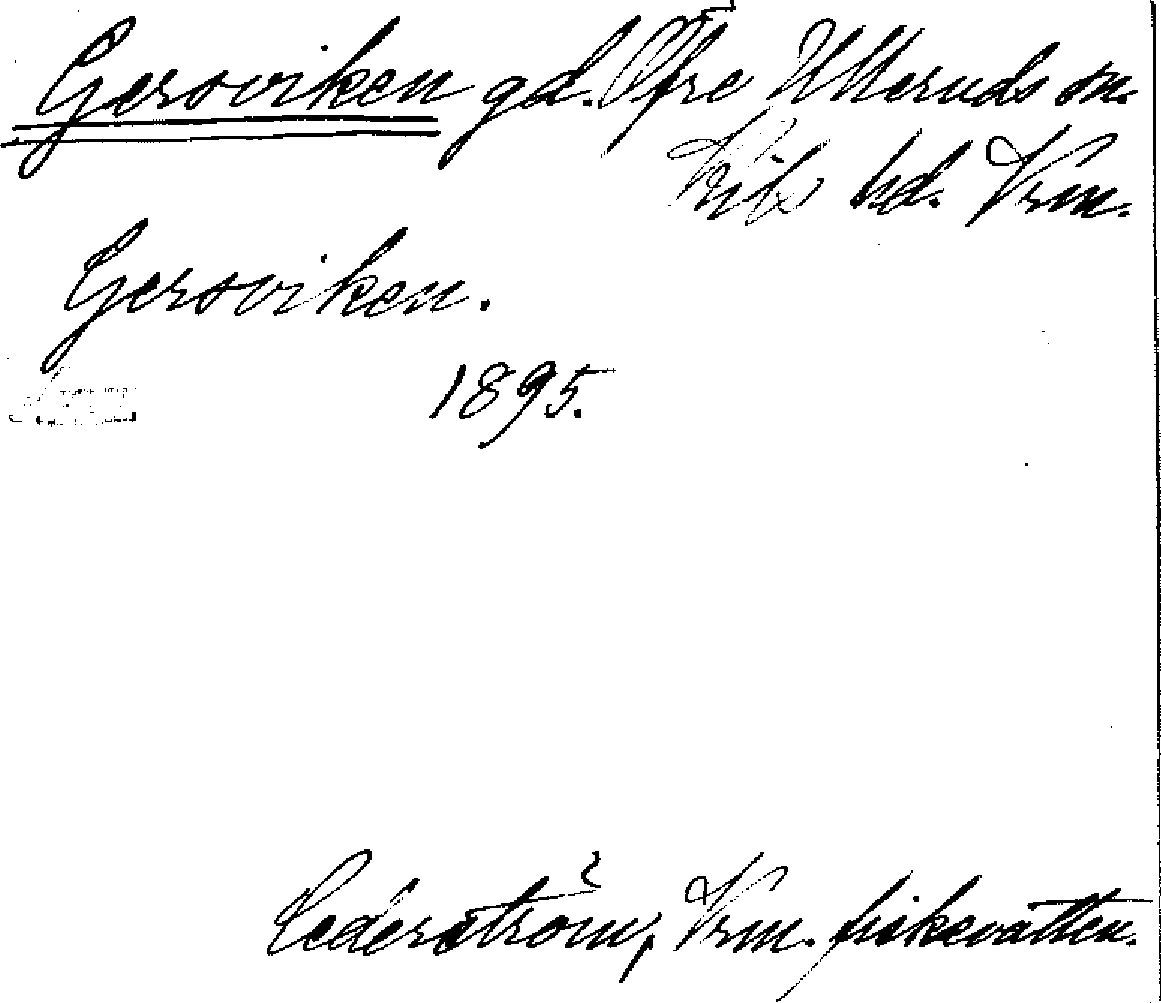 Gersviken gd. Öfre Ulleruds sn.
Kils hd. Vrm.
Gersviken.
1895.
Cederström, Vrm. fiskevatten.